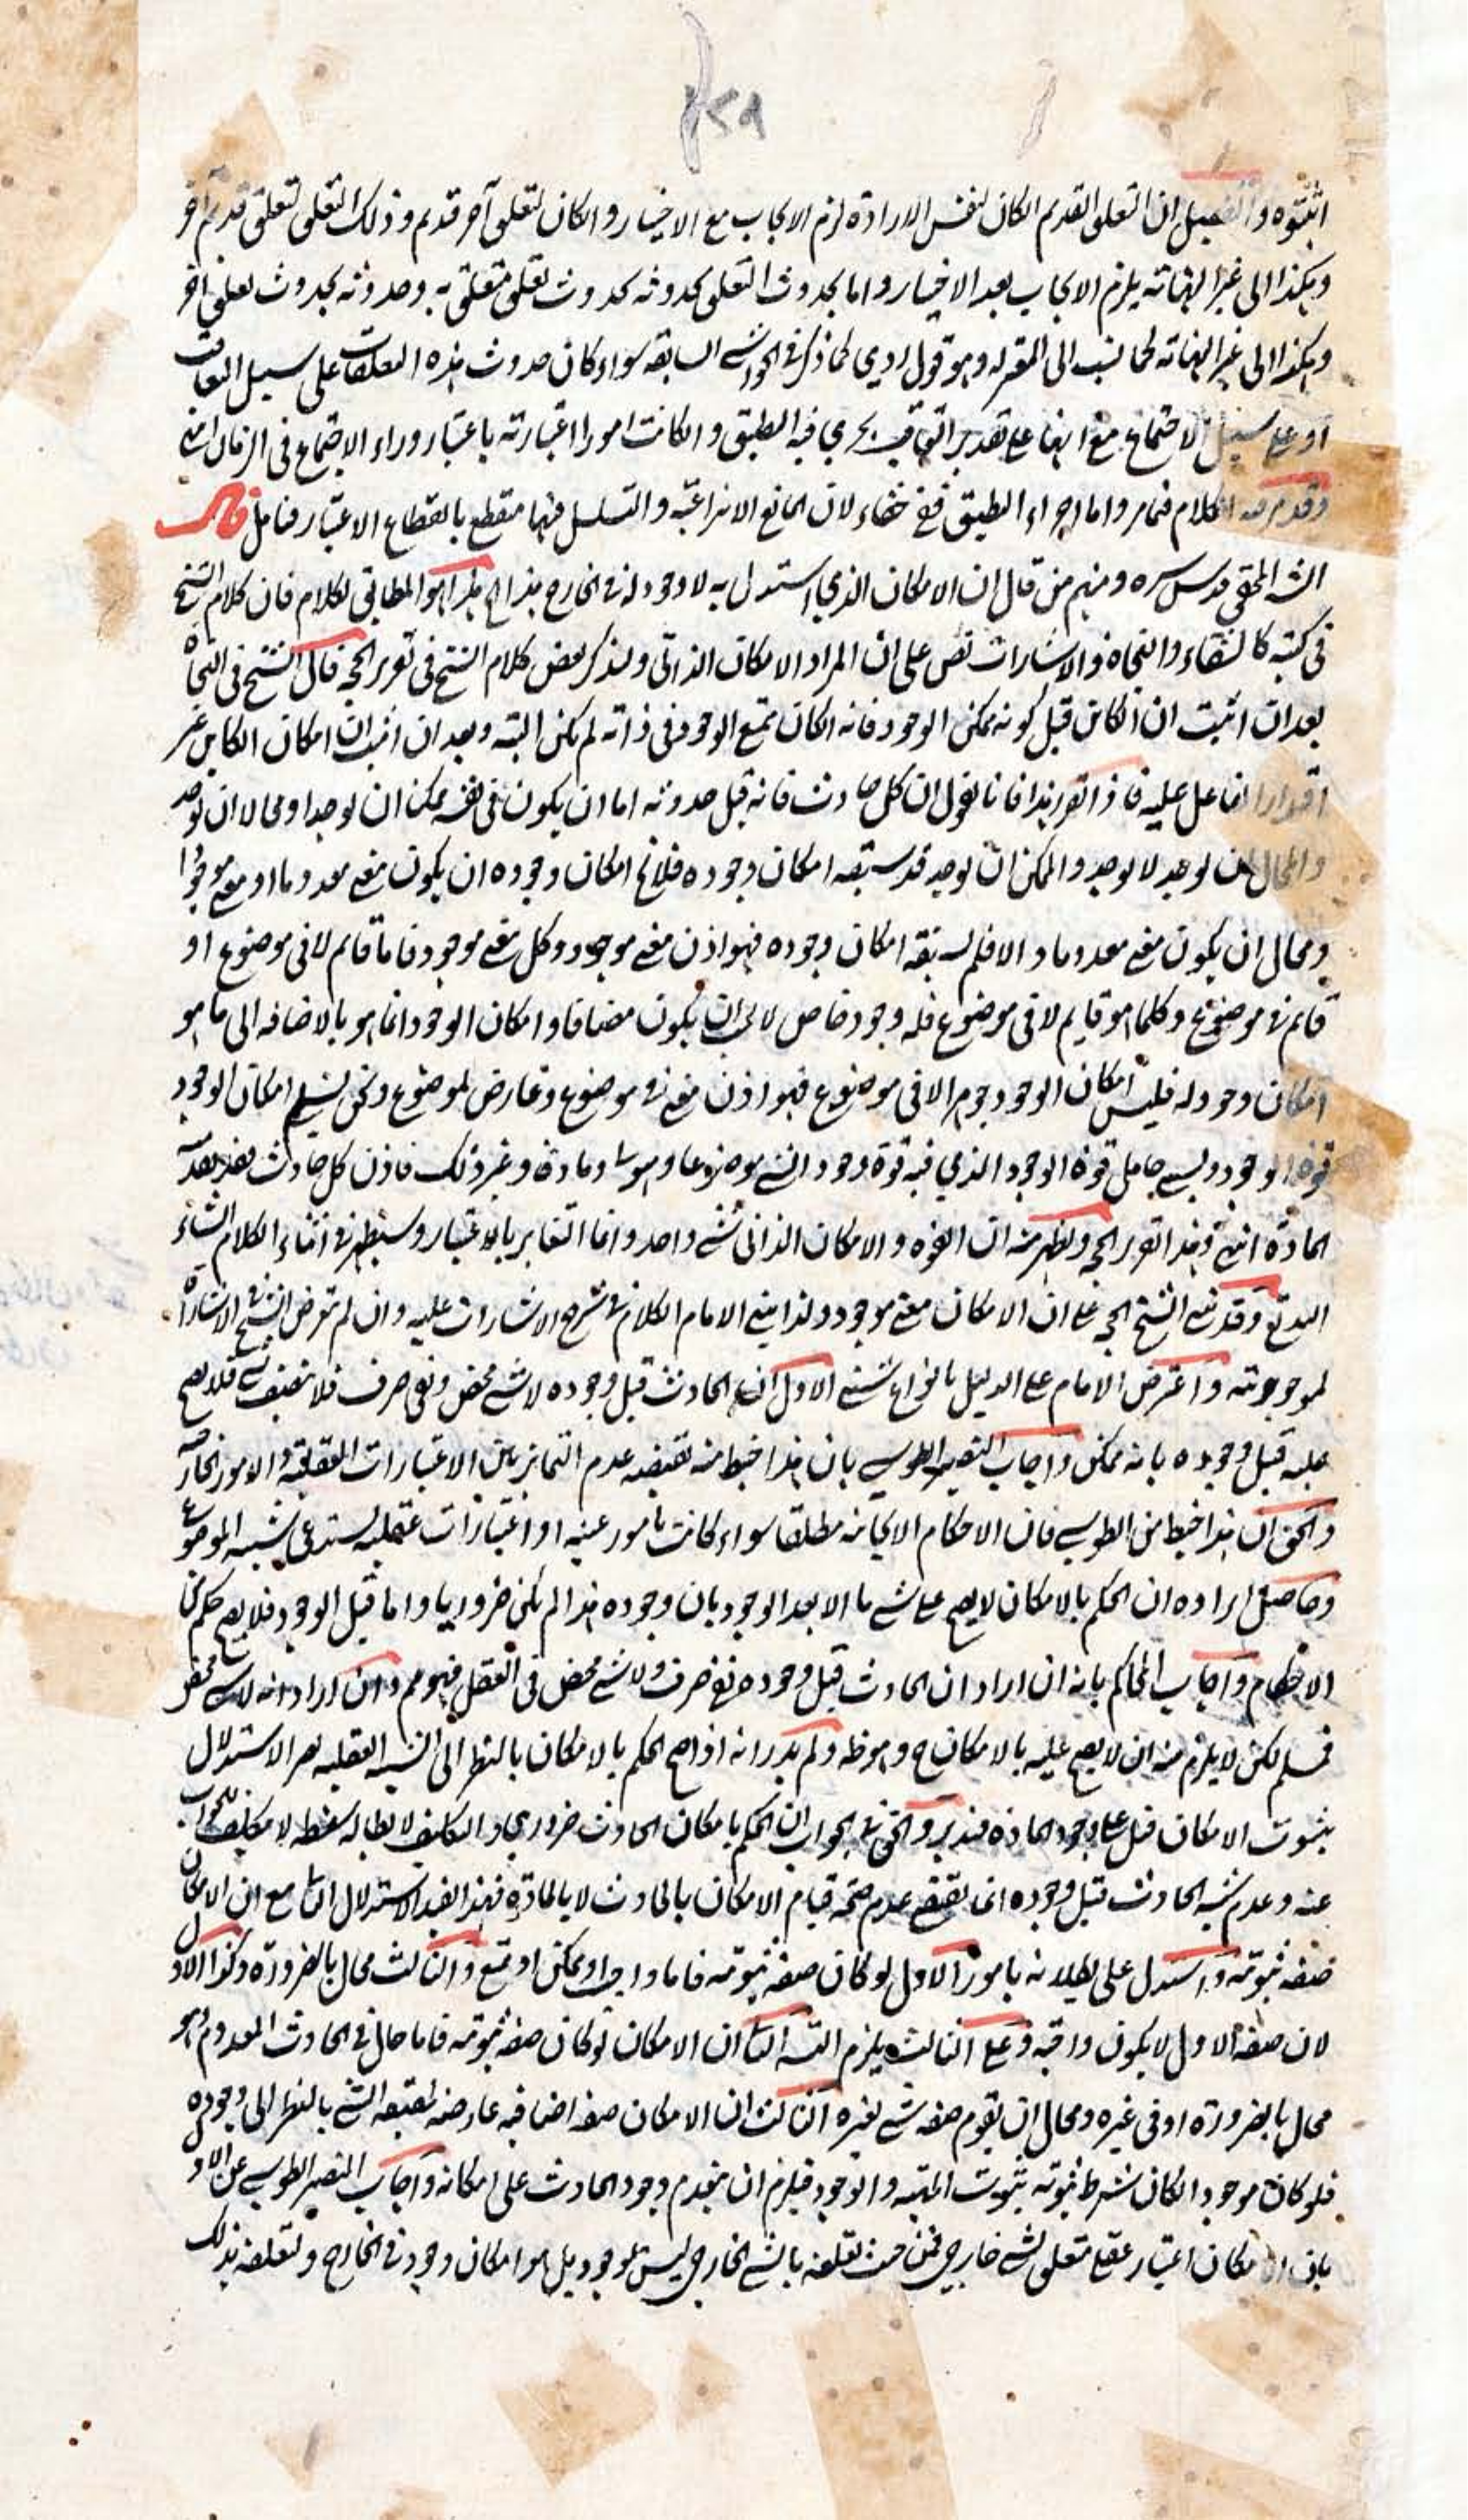 ۴۲۹
اثبتوه والتفصيل ان التعلق القديم ان كان لنفس الارادة لزم الايجاب مع الاختيار وان كان لتعلق آخر قديم وذلك التعلق لتعلق قديم آخر
وهكذا الى غير النهاية يلزم الايجاب بعد الاختيار واما بحدوث التعلق كحدوثه بحدوث تعلق متعلق به وحدوثه بحدوث تعلق آخر
وهكذا الى غير النهاية كما نسب الى المعتزلة وهو قول ردي كما ذكر في الحواشي السابقة سواء كان حدوث هذه التعلقات على سبيل التعاقب
او على سبيل الاجتماع مع ايضا على تقدير التعاقب يجري فيه التطبيق وان كانت امورا اعتبارية باعتبار وراء الاجتماع في الزمان انتهى
وقد مر منه الكلام فيما مر واما اجراء التطبيق ففيه خفاء لان المانع الانتزاعية والتسلسل فيها منقطع بانقطاع الاعتبار فتأمل قال
الشارح المحقق قدس سره ومنهم من قال ان الامكان الذي استدل به لا وجود له في الخارج هذا الخ هذا هو المطابق لكلام فان كلام الشيخ
في كتبه كالشفاء والنجاة والاشارات نص على ان المراد الامكان الذاتي ولنذكر بعض كلام الشيخ في تقرير الحجة قال الشيخ في النجاة
بعد ان اثبت ان الكائن قبل كونه ممكن الوجود فانه ان كان ممتنع الوجود في ذاته لم يكن البتة وبعد ان اثبت ان امكان الكائن غير
اقدار الفاعل عليه فاذا تقرر هذا فانا نقول ان كل حادث فانه قبل حدوثه اما ان يكون في نفسه ممكن ان يوجد او محالا ان يوجد
والمحال ان يوجد لا يوجد والممكن ان يوجد قد سبقه امكان وجوده فلا يخ امكان وجوده ان يكون معنى معدوما او معنى موجودا
ومحال ان يكون معنى معدوما والا فلم يسبقه امكان وجوده فهو اذن معنى موجود وكل معنى موجود فاما قائم لا في موضوع او
قائم في موضوع وكلما هو قايم لا في موضوع فله وجود خاص لا يجب ان يكون مضافا وامكان الوجود انما هو بالاضافة الى ما هو
امكان وجود له فليس امكان الوجود جوهرا لا في موضوع فهو اذن معنى في موضوع وعارض لموضوع ونحن نسمي امكان الوجود
قوة الوجود ونسمي حامل قوة الوجود الذي فيه قوة وجود الشيء موضوعا وهيولى ومادة وغير ذلك فاذن كل حادث فقد تقدمته
المادة انتهى وهذا تقرير الحجة ويظهر منه ان القوة والامكان الذاتي شيء واحد وانما التغاير بالاعتبار وسيظهر في اثناء الكلام انشاء
الله تع وقد بنى الشيخ الحجة على ان الامكان معنى موجود ولذا بنى الامام الكلام في شرح الاشارات عليه وان لم يتعرض الشيخ في الاشارات
لموجوديته واعترض الامام على الدليل بانواع شتى الاول ان الحادث قبل وجوده لا شيء محض ونفي صرف فلا يتصف بشيء فلا يصح
عليه قبل وجوده بانه ممكن واجاب النصير الطوسي بان هذا خبط منه يقتضيه عدم التمايز بين الاعتبارات العقلية والامور الخارجية
والحق ان هذا خبط من الطوسي فان الاحكام الايجابية مطلقا سواء كانت بامور عينية او اعتبارات عقلية يستدعى شيئية الموضوع
وحاصل ايراده ان الحكم بالامكان لا يصح على شيء ما الا بعد الوجود بان وجوده هذا لم يكن ضروريا واما قبل الوجود فلا يصح حكم من
الاحكام واجاب المحاكم بانه ان اراد ان الحادث قبل وجوده نفي صرف ولا شيء محض في العقل فهو مم وان اراد انه لا شيء محض
فمسلم لكن لا يلزم منه ان لا يصح عليه بالامكان ح ولم يدر انه اذا صح الحكم بالامكان بالنظر الى الشيئية العقلية لم يصر الاستدلال
بثبوت الامكان قبل على وجود المادة فتدبر والحق في الجواب ان الحكم بامكان الحادث ضروري والتكليف لابطاله سفسطة لا يكلف للجواب
عنه وعدم شيئية الحادث قبل وجوده انما يقتضى عدم صحة قيام الامكان بالحادث لا بالمادة فهذا يفيد الاستدلال الثاني مع ان الامكان
صفة ثبوتية واستدل على بطلانه بامور الاول لو كان صفة ثبوتية فاما واجب او ممكن او ممتنع والثالث محال بالضرورة وكذا الاول
لان صفة الاول لا يكون واجبة وعلى الثالث يلزم التسلسل الثاني ان الامكان لو كان صفة ثبوتية فاما حال في الحادث المعدوم وهو
محال بالضرورة او في غيره ومحال ان يقوم صفة شيء بغيره الثالث ان الامكان صفة اضافية عارضة لحقيقة الشيء بالنظر الى وجوده
فلو كان موجودا لكان شرط ثبوته بثبوت المهية والوجود فيلزم ان يتقدم وجود الحادث على امكانه واجاب النصير الطوسي عن الاول
بان الامكان اعتبار عقلي متعلق بشيء خارجي فمن حيث تعلقه بالشيء الخارجي ليس بموجود بل هو امكان وجود في الخارج ولتعلقه بذلك